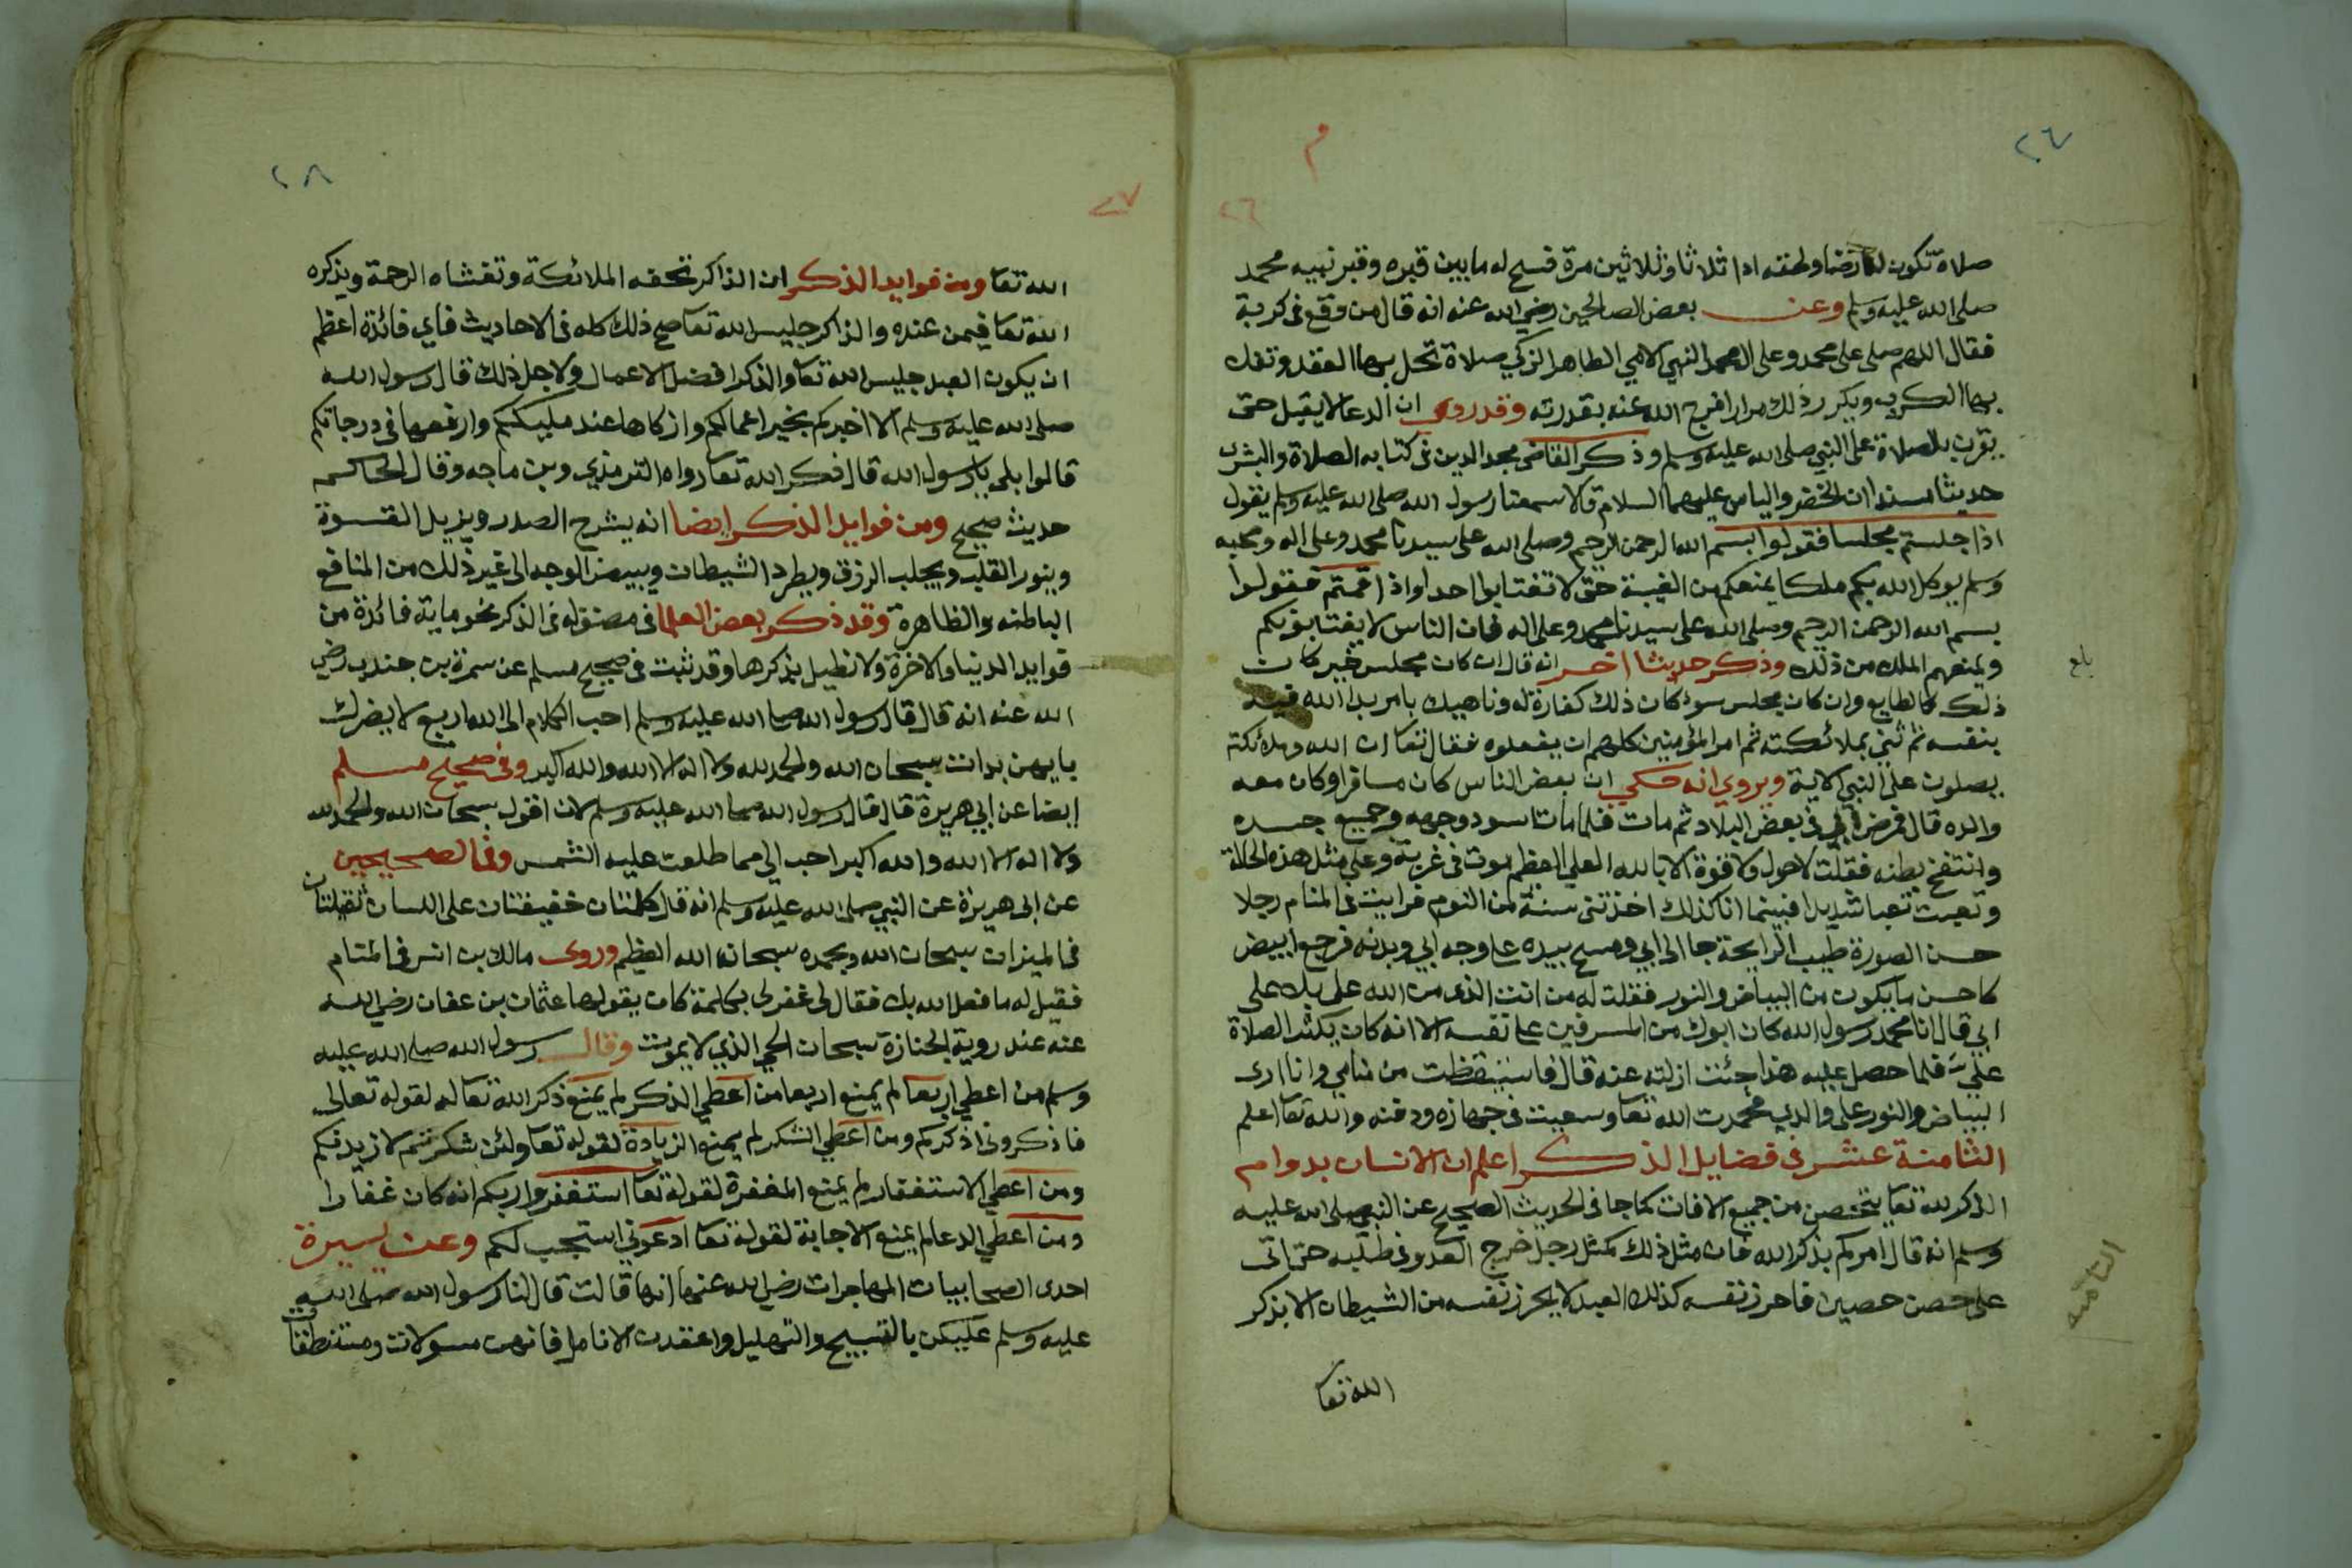 ٢٦
م
٢٦
صلاة تكون لك رضا ولحقه ادا ثلاثا وثلاثين مرة فسح له ما بين قبره وقبر نبيه محمد
صلى الله عليه وسلم وعن بعض الصالحين رضي الله عنه انه قال من وقع فى كربة
فقال اللهم صلى على محمد وعلى ال محمد النبي الامي الطاهر الزكي صلاة تحل بها العقد وتفك
بها الكرب ويكرر ذلك مرارا فرج الله عنه بقدرته وقد روى ان الدعا لا يقبل حتى
يقرن بالصلاة على النبي صلى الله عليه وسلم وذكر القاضى مجد الدين فى كتابه الصلاة والبشر
حديثا مسندا ان الخضر والياس عليهما السلام قالا سمعنا رسول الله صلى الله عليه وسلم يقول
اذا جلستم مجلسا فقولوا بسم الله الرحمن الرحيم وصلى الله على سيدنا محمد وعلى اله وصحبه
وسلم يوكل الله بكم ملكا يمنعكم من الغيبة حتى لا تغتابوا احدا واذا قمتم فقولوا
بسم الله الرحمن الرحيم وصلى الله على سيدنا محمد وعلى اله فان الناس لا يغتابونكم
ويمنعهم الملك من ذلك وذكر حديثا اخر انه قال ان كان مجلس خير كان
بلغ
ذلك كالطابع وان كان مجلس سوء كان ذلك كفارة له وناهيك بامر بدا الله فيه
بنفسه ثم ثنى بملائكته ثم امر المؤمنين كلهم ان يفعلوه فقال تعا ان الله وملائكته
يصلون على النبي الاية ويروى انه حكى ان بعض الناس كان مسافرا وكان معه
والده قال فمرض ابي فى بعض البلاد ثم مات فلما مات اسود وجهه وجميع جسده
وانتفخ بطنه فقلت لا حول ولا قوة الا بالله العلي العظيم موت فى غربة وعلى مثل هذه الحالة
وتعبت تعبا شديدا فبينما انا كذلك اخذتنى سنة من النوم فرايت فى المنام رجلا
حسن الصورة طيب الرايحة جا الى ابي ومسح بيده على وجه ابي وبدنه فرجع ابيض
كاحسن ما يكون من البياض والنور فقلت له من انت الذى من الله على بك على
ابي قال انا محمد رسول الله كان ابوك من المسرفين على نفسه الا انه كان يكثر الصلاة
علي فلما حصل عليه هذا جئت ازلته عنه قال فاستيقظت من منامي وانا ارى
البياض والنور على والدي فحمدت الله تعا وسعيت فى جهازه ودفنه والله تعا اعلم
الثامنة عشر فى فضايل الذكر اعلم ان الانسان بدوام
الذكر لله تعا يتحصن من جميع الافات كما جا فى الحديث الصحيح عن النبي صلى الله عليه
وسلم انه قال امركم بذكر الله فان مثل ذلك كمثل رجل خرج العدو فى طلبه حتى اتى
على حصن حصين فاحرز نفسه كذلك العبد لا يحرز نفسه من الشيطان الا بذكر
الثامنه
الله تعا
٢٨
٢٧
الله تعا ومن فوايد الذكر ان الذاكر تحفه الملائكة وتغشاه الرحمة ويذكره
الله تعا فيمن عنده والذاكر جليس الله تعا صح ذلك كله فى الاحاديث فاي فائدة اعظم
ان يكون العبد جليس الله تعا والذكر افضل الاعمال ولاجل ذلك قال رسول الله
صلى الله عليه وسلم الا اخبركم بخير اعمالكم وازكاها عند مليككم وارفعها فى درجاتكم
قالوا بلى يا رسول الله قال ذكر الله تعا رواه الترمذي وبن ماجه وقال الحاكم
حديث صحيح ومن فوايد الذكر ايضا انه يشرح الصدر ويزيل القسوة
وينور القلب ويجلب الرزق ويطرد الشيطان ويبيض الوجه الى غير ذلك من المنافع
الباطنه والظاهرة وقد ذكر بعض العلما فى مصنف له فى الذكر نحو ماية فائدة من
فوايد الدنيا والاخرة ولا نطيل بذكرها وقد ثبت فى صحيح مسلم عن سمرة بن جندب رضي
الله عنه انه قال قال رسول الله صلى الله عليه وسلم احب الكلام الى الله اربع لا يضرك
بايهن بدات سبحان الله والحمد لله ولا اله الا الله والله اكبر وفى صحيح مسلم
ايضا عن ابي هريرة قال قال رسول الله صلى الله عليه وسلم لان اقول سبحان الله والحمد لله
ولا اله الا الله والله اكبر احب الي مما طلعت عليه الشمس وفى الصحيحين
عن ابى هريرة عن النبي صلى الله عليه وسلم انه قال كلمتان خفيفتان على اللسان ثقيلتان
فى الميزان سبحان الله وبحمده سبحان الله العظيم وروى مالك بن انس فى المنام
فقيل له ما فعل الله بك فقال لى غفر لى بكلمة كان يقولها عثمان بن عفان رضي الله
عنه عند روية الجنازة سبحان الحي الذي لا يموت وقال رسول الله صلى الله عليه
وسلم من اعطي اربعا لم يمنع اربعا من اعطي الذكر لم يمنع ذكر الله تعا له لقوله تعالى
فاذكرونى اذكركم ومن اعطي الشكر لم يمنع الزيادة لقوله تعا ولئن شكرتم لازيدنكم
ومن اعطي الاستغفار لم يمنع المغفرة لقوله تعا استغفروا ربكم انه كان غفارا
ومن اعطي الدعا لم يمنع الاجابة لقوله تعا ادعوني استجب لكم وعن يسيرة
احدى الصحابيات المهاجرات رضي الله عنها انها قالت قال لنا رسول الله صلى الله
عليه وسلم عليكن بالتسبيح والتهليل واعقدن الانامل فانهن مسولات ومستنطقات